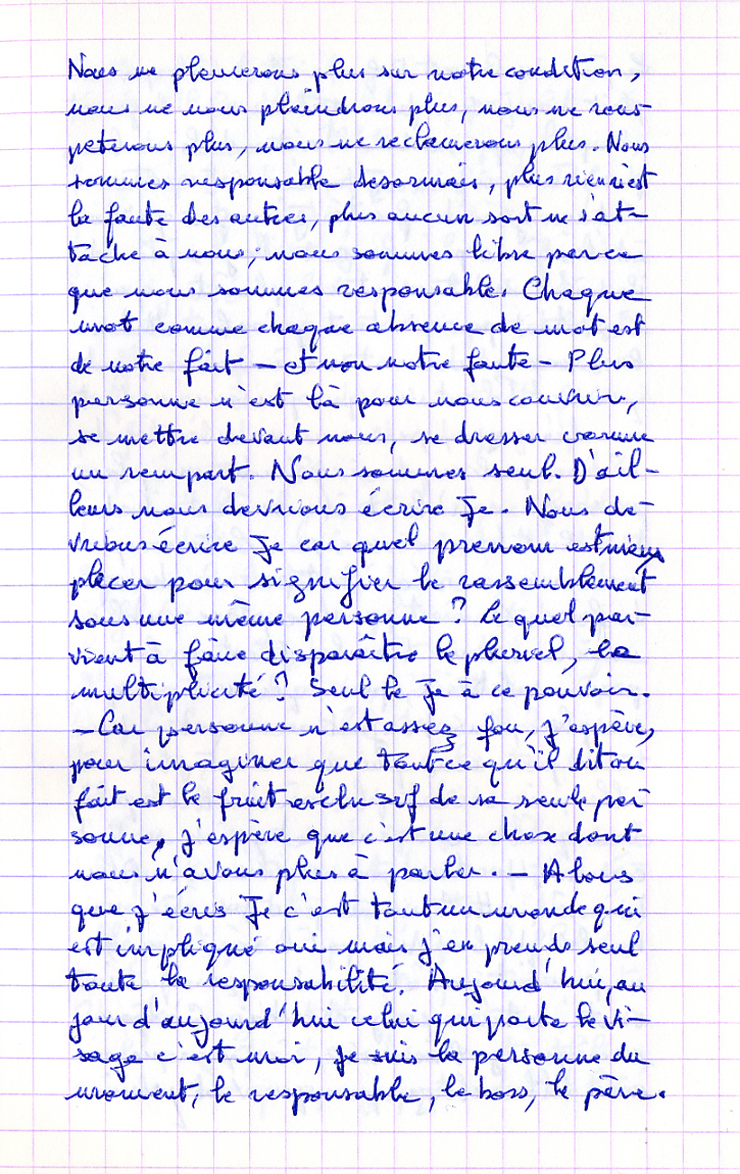 Nous ne pleurerons plus sur notre condition,
nous ne nous plaindrons plus, nous ne rous-
peterons plus, nous ne reclamerons plus. Nous
sommes responsable desormais, plus rien n'est
la faute des autres, plus aucun sort ne s'at-
tache à nous ; nous sommes libre parce
que nous sommes responsable. Chaque
mot comme chaque absence de mot est
de notre fait – et non notre faute – Plus
personne n'est là pour nous couvrir,
se mettre devant nous, se dresser comme
un rempart. Nous sommes seul. D'ail-
leurs nous devrions écrire Je. Nous de-
vrions écrire Je car quel pronom est mieux
placer pour signifier le rassemblement
sous une même personne ? Le quel par-
vient à faire disparaître le pluriel, la
multiplicité ? Seul le Je à ce pouvoir.
– Car personne n'est assez fou, j'espère,
pour imaginer que tout ce qu'il dit ou
fait est le fruit exclusif de sa seule per
sonne, j'espère que c'est une chose dont
nous n'avons plus à parler. – Alors
que j'écris Je c'est tout un monde qui
est impliqué oui mais j'en prends seul
toute la responsabilité. Aujourd'hui, au
jour d'aujourd'hui celui qui porte le vi-
sage c'est moi, je suis la personne du
moment, le responsable, le boss, le père.